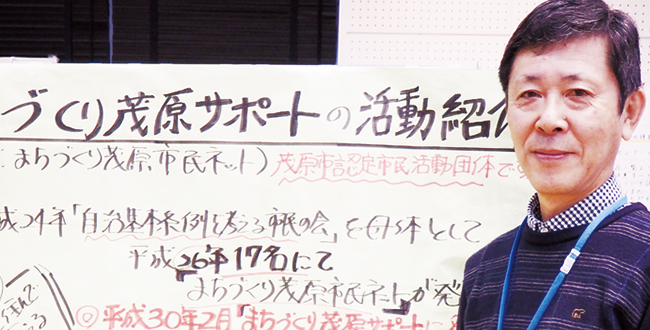 づくり茂原サポートの活動紹介
まちづくり茂原市民ネット)茂原市認定市民活動団体です
成24年「自治基本条例を考える市民の会」を母体として
平成26年17名にて
まちづくり茂原市民ネットが発
◎平成30年2月「まちづくり茂原サポートに